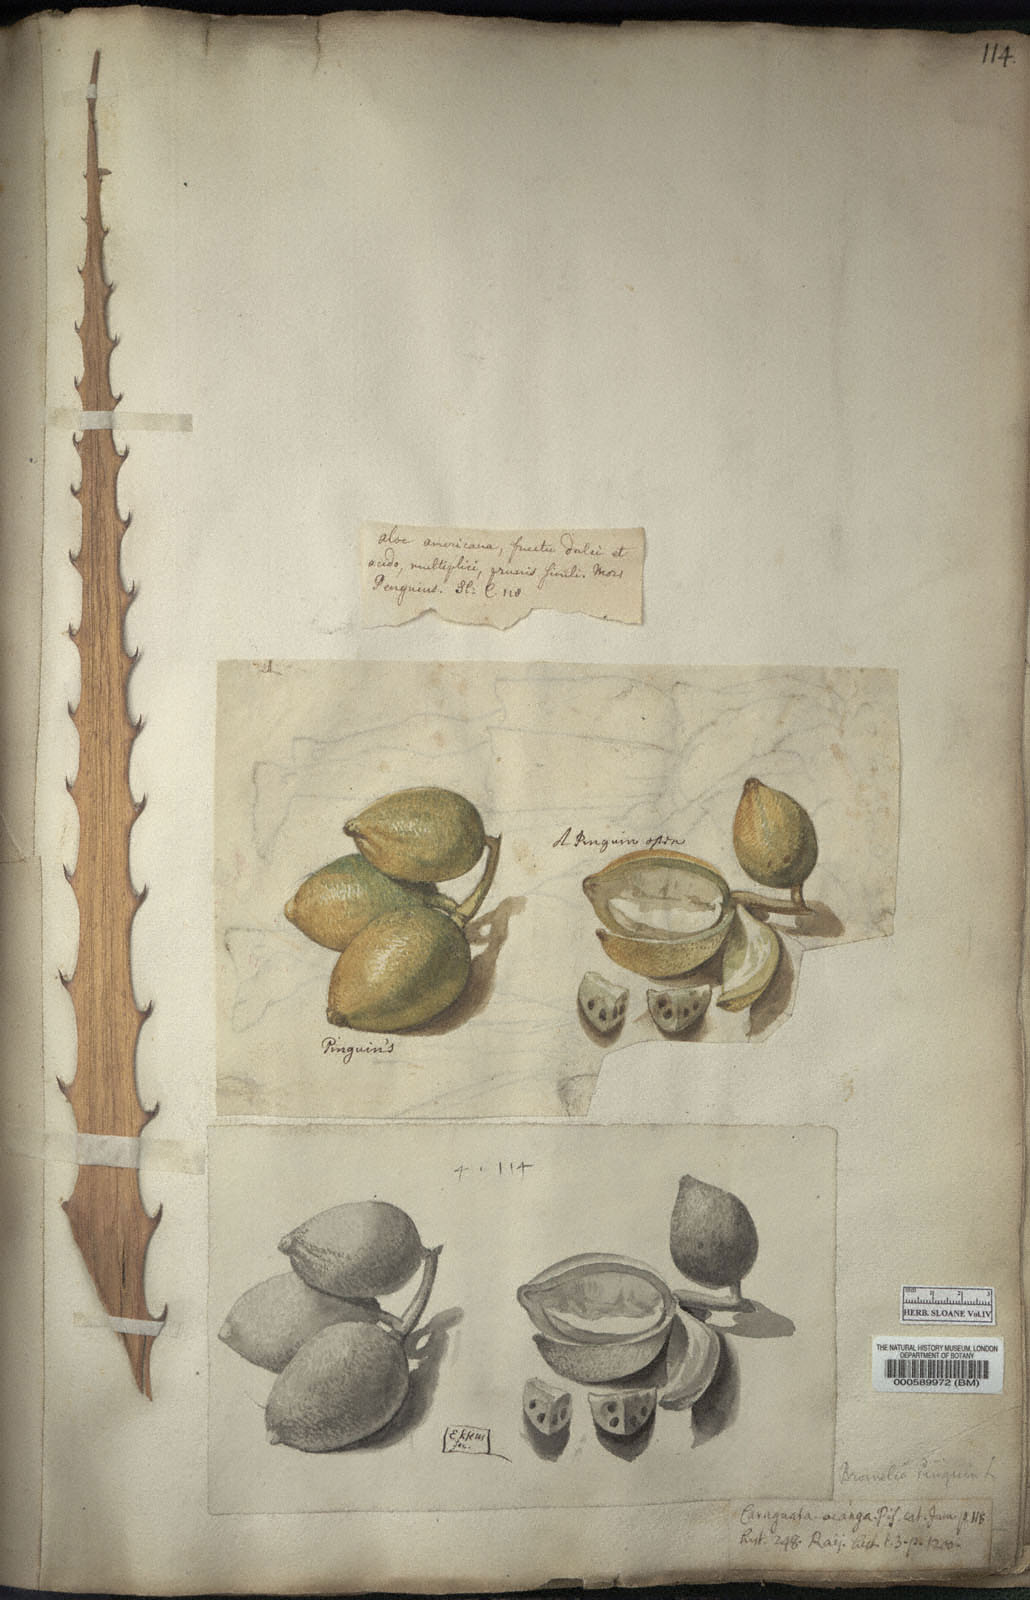 114.
aloe americana, fructu dulci et
acido, multiplici, prunis simili. Mor.
Penguins. Sl: C. 118
A Pinguin open
Pinguin's
4. 114
HERB. SLOANE Vol.IV
THE NATURAL HISTORY MUSEUM, LONDON
DEPARTMENT OF BOTANY
000589972 (BM)
Bromelia Pinguin L
Caraguata-acanga. Pis. cat. Jam. p. 118
Hist. 248. Raij. hist. t. 3. p.